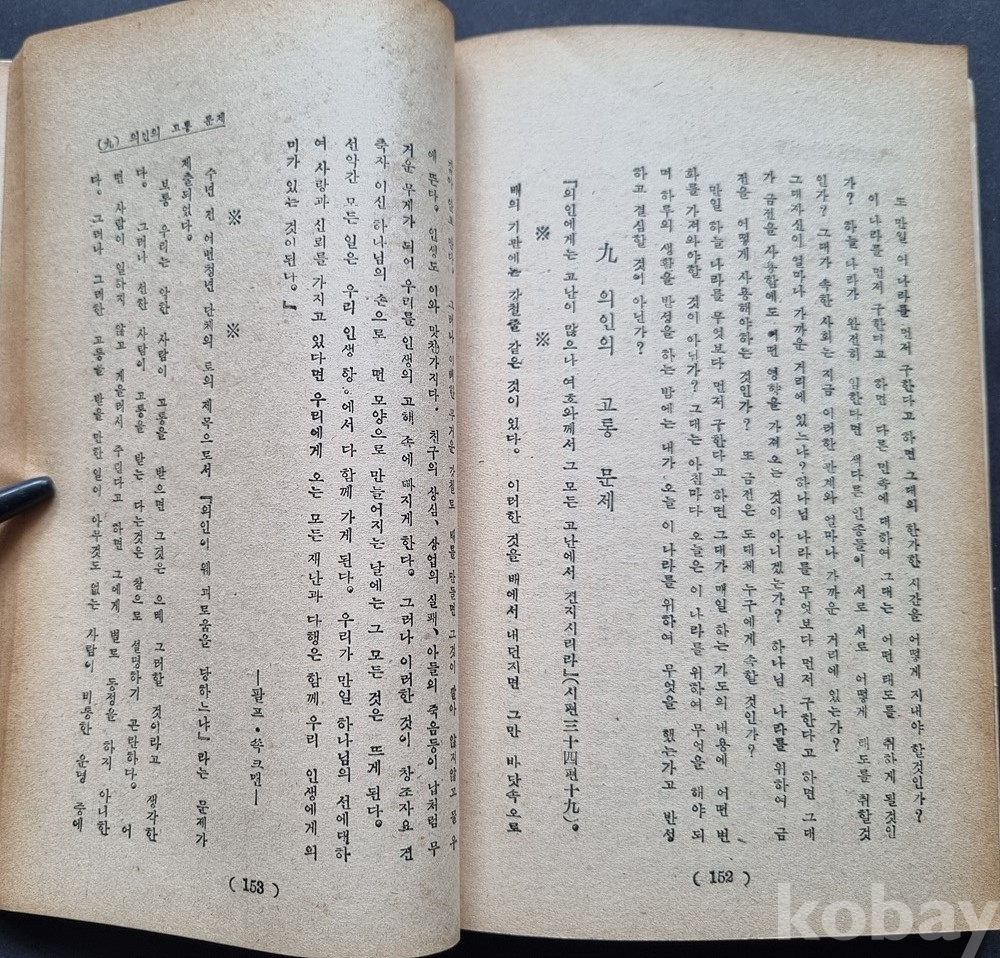 또 만일 이 나라를 먼저 구한다고 하면 그대의 한가한 시간을 어떻게 지내야 할것인가?
이 나라를 먼저 구한다고 하면 다른 민족에 대하여 그대는 어떤 태도를 취하게 될것인
가? 하늘 나라가 완전히 임한다면 색다른 인종들이 서로 서로 어떻게 태도를 취할것
인가? 그대가 속한 사회는 지금 이러한 관계와 얼마나 가까운 거리에 있는가?
그대자신이 얼마나 가까운 거리에 있느냐? 하나님 나라를 무엇보다 먼저 구한다고 하면 그대
가 금전을 사용함에도 어떤 영향을 가져오는 것이 아니겠는가? 하나님 나라를 위하여 금
전을 어떻게 사용해야하는 것인가? 또 금전은 도대체 누구에게 속할 것인가?
만일 하늘 나라를 무엇보다 먼저 구한다고 하면 그대가 매일 하는 기도의 내용에 어떤 변
화를 가져와야할 것이 아닌가? 그대는 아침마다 오늘은 이 나라를 위하여 무엇을 해야 되
며 하루의 생활을 반성을 하는 밤에는 내가 오늘 이 나라를 위하여 무엇을 했는가고 반성
하고 결심할 것이 아닌가?
九 의인의 고통 문제
『의인에게는 고난이 많으나 여호와께서 그 모든 고난에서 건지시리라』(시편三十四편十九)。
※ ※
배의 기관에는 강철줄 같은 것이 있다. 이러한 것을 배에서 내던지면 그만 바닷속으로
( 152 )
(九) 의인의 고통 문제
그러나 이러한 무거운 강철로 배를 만들면 그것이 물 우
에 뜬다. 인생도 이와 맞찬가지다. 친구의 상실, 상업의 실패, 아들의 죽음등이 납처럼 무
거운 무게가 되어 우리를 인생의 고해 속에 빠지게 한다. 그러나 이러한 것이 창조자요 건
축자 이신 하나님의 손으로 떤 모양으로 만들어지는 날에는 그 모든 것은 뜨게 된다.
선악간 모든 일은 우리 인생 항에서 다 함께 가게 된다. 우리가 만일 하나님의 선에대하
여 사랑과 신뢰를 가지고 있다면 우리에게 오는 모든 재난과 다행은 함께 우리 인생에게 의
미가 있는 것이 된다。』
—랄프・쏙크맨—
※ ※
수년 전 어떤청년 단체의 토의 제목으로서 『의인이 웨 괴로움을 당하느냐』 라는 문제가
제출되었다.
보통 우리는 악한 사람이 고통을 받으면 그것은 으례 그러할 것이라고 생각한
다. 그러나 선한 사람이 고통을 받는 다는것은 참으로 설명하기 곤란하다. 어
면 사람이 일하지 않고 게을러서 주린다고 하면 그에게 별로 동정을 하지 아니한
다. 그러나 그러한 고통을 받을 만한 일이 아무것도 없는 사람이 비통한 운명 중에
( 153 )
kobay